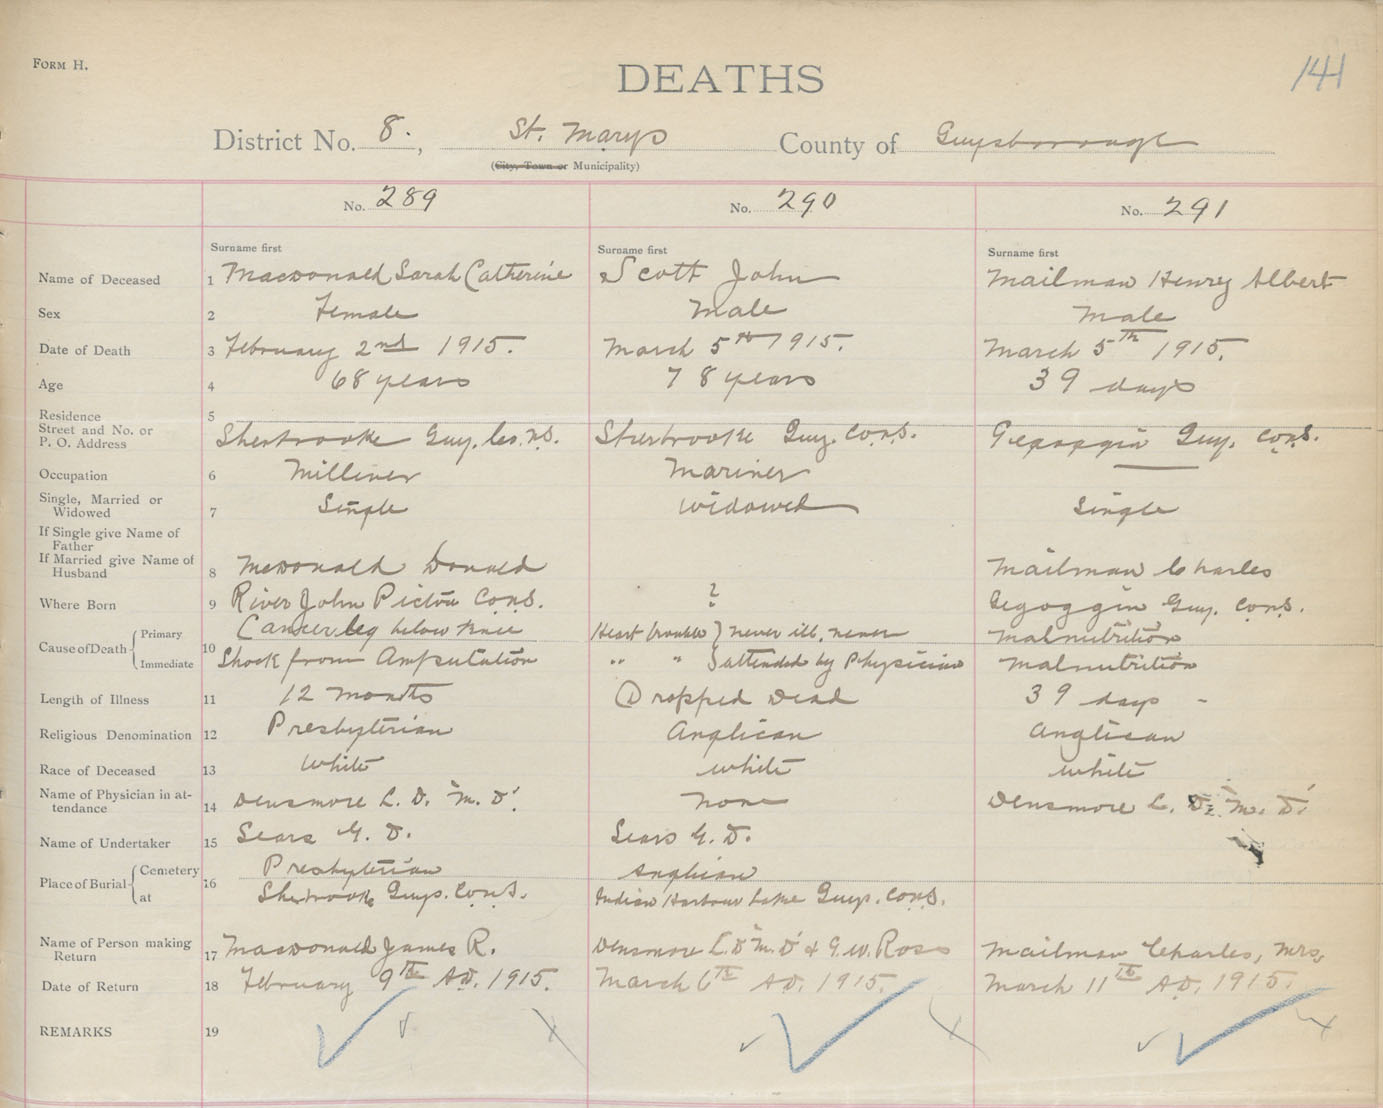 FORM H.
141
DEATHS
District No. 8. , St. Marys County of Guysborough
(City, Town or Municipality)
No. 289 No. 290 No. 291
Surname first Surname first Surname first
Name of Deceased 1 Macdonald Sarah Catherine Scott John Mailman Henry Albert
Sex 2 Female Male Male
Date of Death 3 February 2nd 1915. March 5th 1915. March 5th 1915.
Age 4 68 years 78 years 39 days
Residence
Street and No. or
P. O. Address 5 Sherbrooke Guy. Co. N.S. Sherbrooke Guy. Co. N.S. Gegoggin Guy. Co. N.S.
Occupation 6 Milliner Mariner —
Single, Married or
Widowed 7 Single Widowed Single
If Single give Name of
Father
If Married give Name of
Husband 8 McDonald Donald Mailman Charles
Where Born 9 River John Pictou Co. N.S. ? Gegoggin Guy. Co. N.S.
Cause of Death { Primary 10 Cancer leg below knee Heart trouble } never ill, never Malnutrition
Immediate Shock from Amputation " " } attended by Physician Malnutrition
Length of Illness 11 12 months Dropped Dead 39 days -
Religious Denomination 12 Presbyterian Anglican Anglican
Race of Deceased 13 White White White
Name of Physician in at-
tendance 14 Densmore L. D. "M. D." None Densmore L. D. "M. D."
Name of Undertaker 15 Sears G. D. Sears G. D.
Place of Burial { Cemetery 16 Presbyterian Anglican
at Sherbrooke Guys. Co. N.S. Indian Harbour Lake Guys. Co. N.S.
Name of Person making
Return 17 Macdonald James R. Densmore L. D "M. D" & G. W. Ross Mailman Charles, Mrs.
Date of Return 18 February 9th A.D. 1915. March 6th A.D. 1915. March 11th A.D. 1915.
REMARKS 19